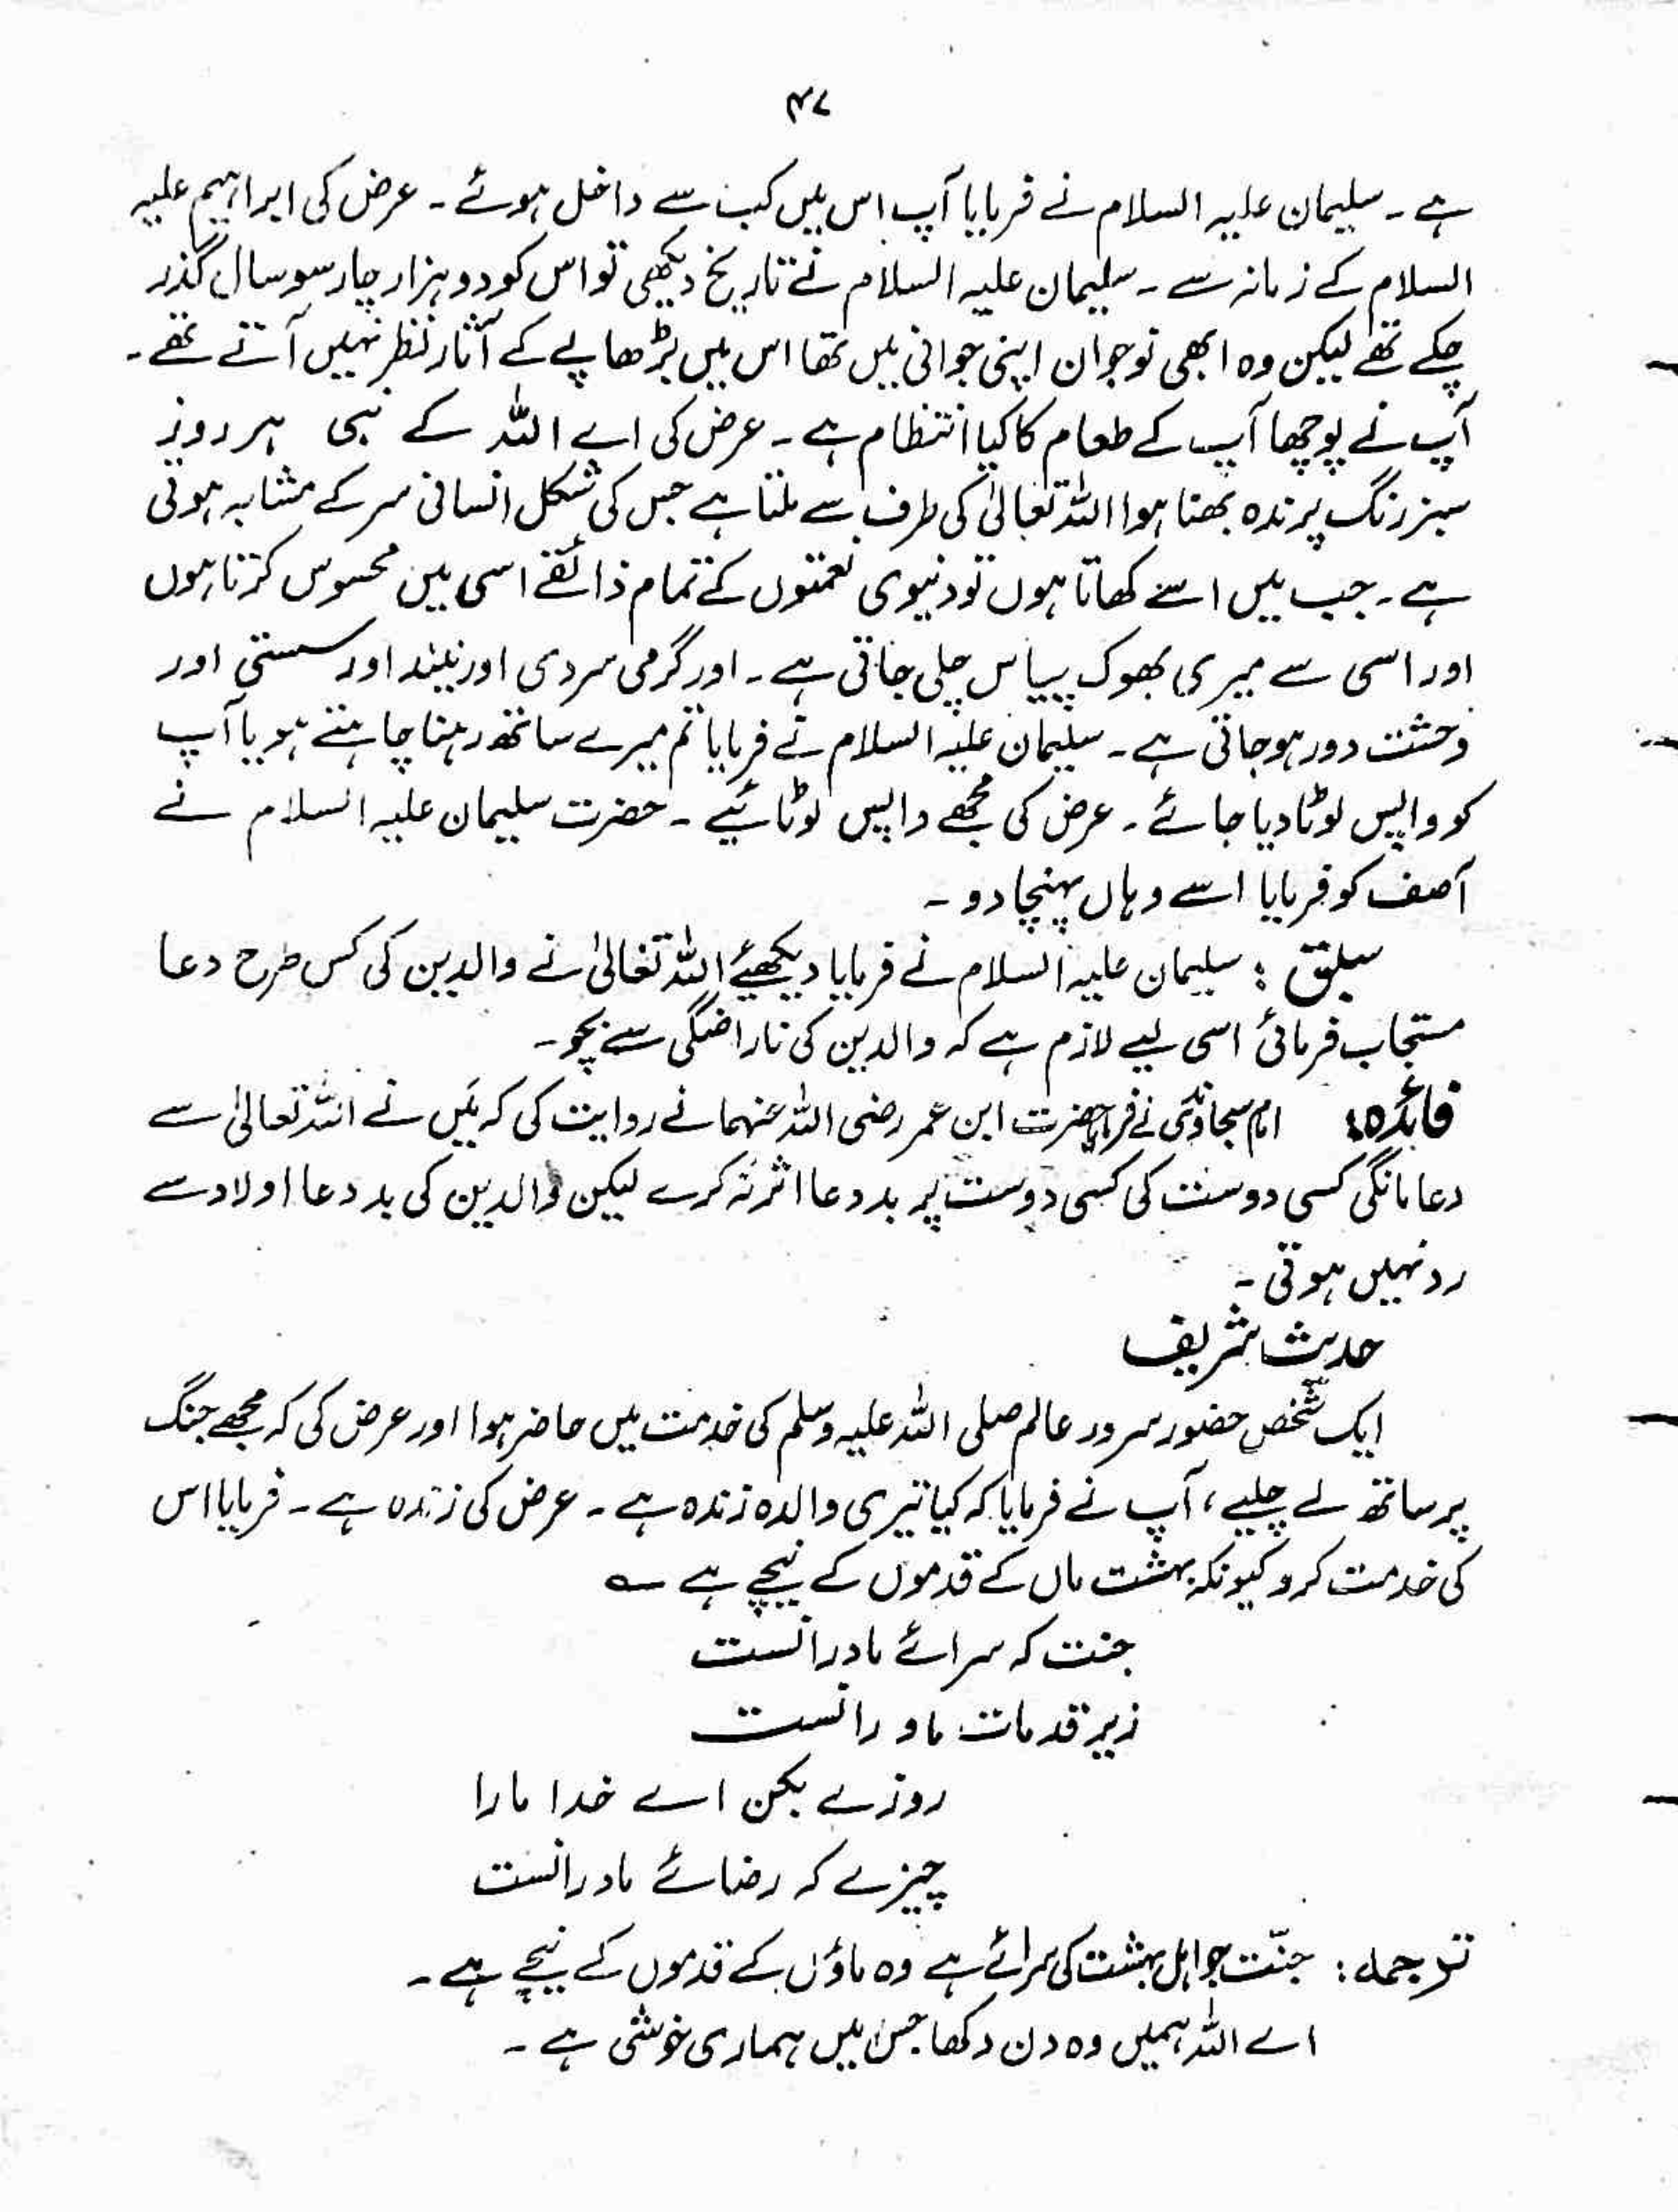 ۴۷
ہے ۔ سلیمان علیہ السلام نے فرمایا آپ اس میں کب سے داخل ہوئے ۔ عرض کی ابراہیم علیہ
السلام کے زمانہ سے ۔ سلیمان علیہ السلام نے تاریخ دیکھی تو اس کو دو ہزار چار سو سال گذر
چکے تھے لیکن وہ ابھی نوجوان اپنی جوانی میں تھا اس میں بڑھاپے کے آثار نظر نہیں آتے تھے ۔
آپ نے پوچھا آپ کے طعام کا کیا انتظام ہے ۔ عرض کی اے اللہ کے نبی ہر روز
سبز رنگ پرندہ بھنا ہوا اللہ تعالیٰ کی طرف سے ملتا ہے جس کی شکل انسانی سر کے مشابہ ہوتی
ہے ۔ جب میں اسے کھاتا ہوں تو دنیوی نعمتوں کے تمام ذائقے اسی میں محسوس کرتا ہوں
اور اسی سے میری بھوک پیاس چلی جاتی ہے ۔ اور گرمی سردی اور نیند اور سستی اور
وحشت دور ہو جاتی ہے ۔ سلیمان علیہ السلام نے فرمایا تم میرے ساتھ رہنا چاہتے ہو یا آپ
کو واپس لوٹا دیا جائے ۔ عرض کی مجھے واپس لوٹائیے ۔ حضرت سلیمان علیہ السلام نے
آصف کو فرمایا اسے وہاں پہنچا دو ۔
سبق : سلیمان علیہ السلام نے فرمایا دیکھئے اللہ تعالیٰ نے والدین کی کس طرح دعا
مستجاب فرمائی اسی لیے لازم ہے کہ والدین کی ناراضگی سے بچو ۔
فائدہ : امام سجاوندی نے فرمایا حضرت ابن عمر رضی اللہ عنہما نے روایت کی کہ میں نے اللہ تعالیٰ سے
دعا مانگی کسی دوست کی کسی دوست پر بد دعا اثر نہ کرے لیکن والدین کی بد دعا اولاد سے
رد نہیں ہوتی ۔
حدیث شریف
ایک شخص حضور سرور عالم صلی اللہ علیہ وسلم کی خدمت میں حاضر ہوا اور عرض کی کہ مجھے جنگ
پر ساتھ لے چلیے ، آپ نے فرمایا کہ کیا تیری والدہ زندہ ہے ۔ عرض کی زندہ ہے ۔ فرمایا اس
کی خدمت کرو کیونکہ بہشت ماں کے قدموں کے نیچے ہے ؎
جنت کہ سرائے مادرانست
زیر قدمات مادرانست
روزے بکن اے خدا مارا
چیزے کہ رضائے مادرانست
ترجمہ : جنّت جو اہل بہشت کی سرائے ہے وہ ماؤں کے قدموں کے نیچے ہے ۔
اے اللہ ہمیں وہ دن دکھا جس میں ہماری خوشی ہے ۔